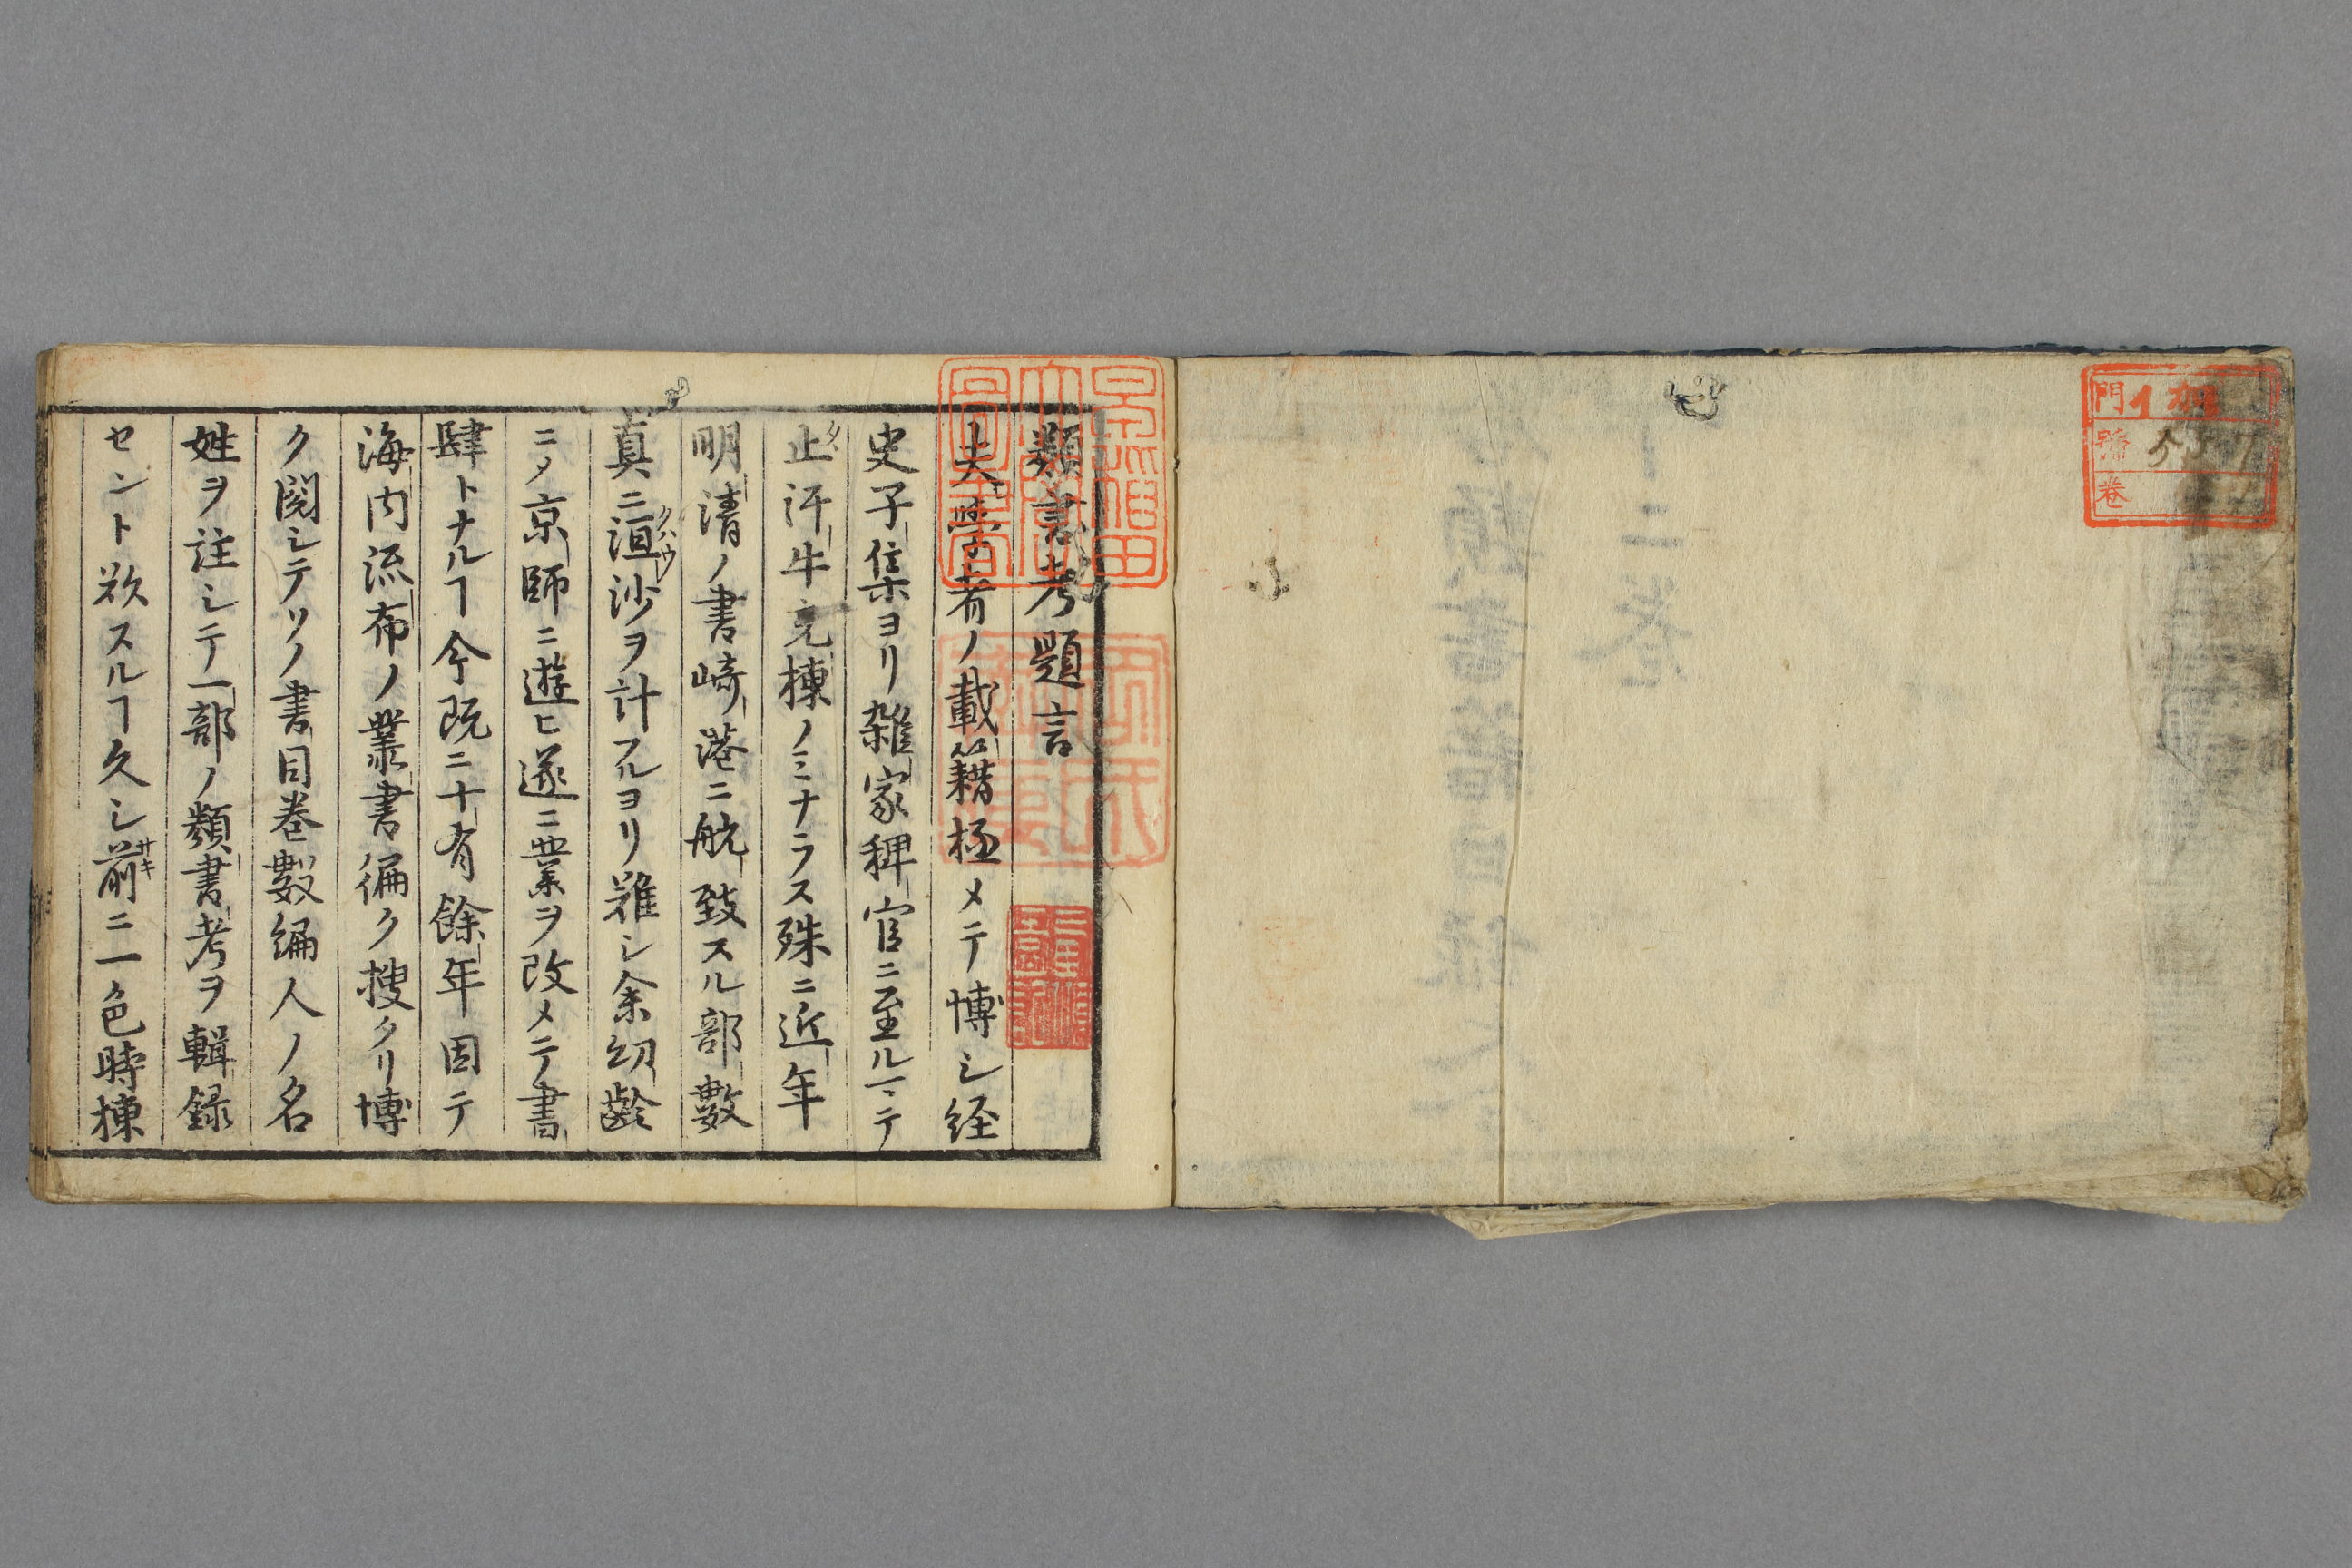 門イ
號 557
卷
類書考題言
夫學者ノ載籍極メテ博シ経
史子集ヨリ雑家稗官ニ至ルマテ
止汗牛充棟ノミナラス殊ニ近年
タヽ
明清ノ書﨑港ニ航致スル部數
真ニ洹沙ヲ計フルヨリ難シ余幼齢
ニ〆京師ニ遊ヒ遂ニ業ヲ改メテ書
肆トナルヿ今既ニ十有餘年因テ
海内流布ノ叢書徧ク搜クリ博
ク閲シテソノ書目巻數編人ノ名
姓ヲ註シテ一部ノ類書考ヲ輯録
セント欲スルヿ久シ前ニ一色時棟
サキ